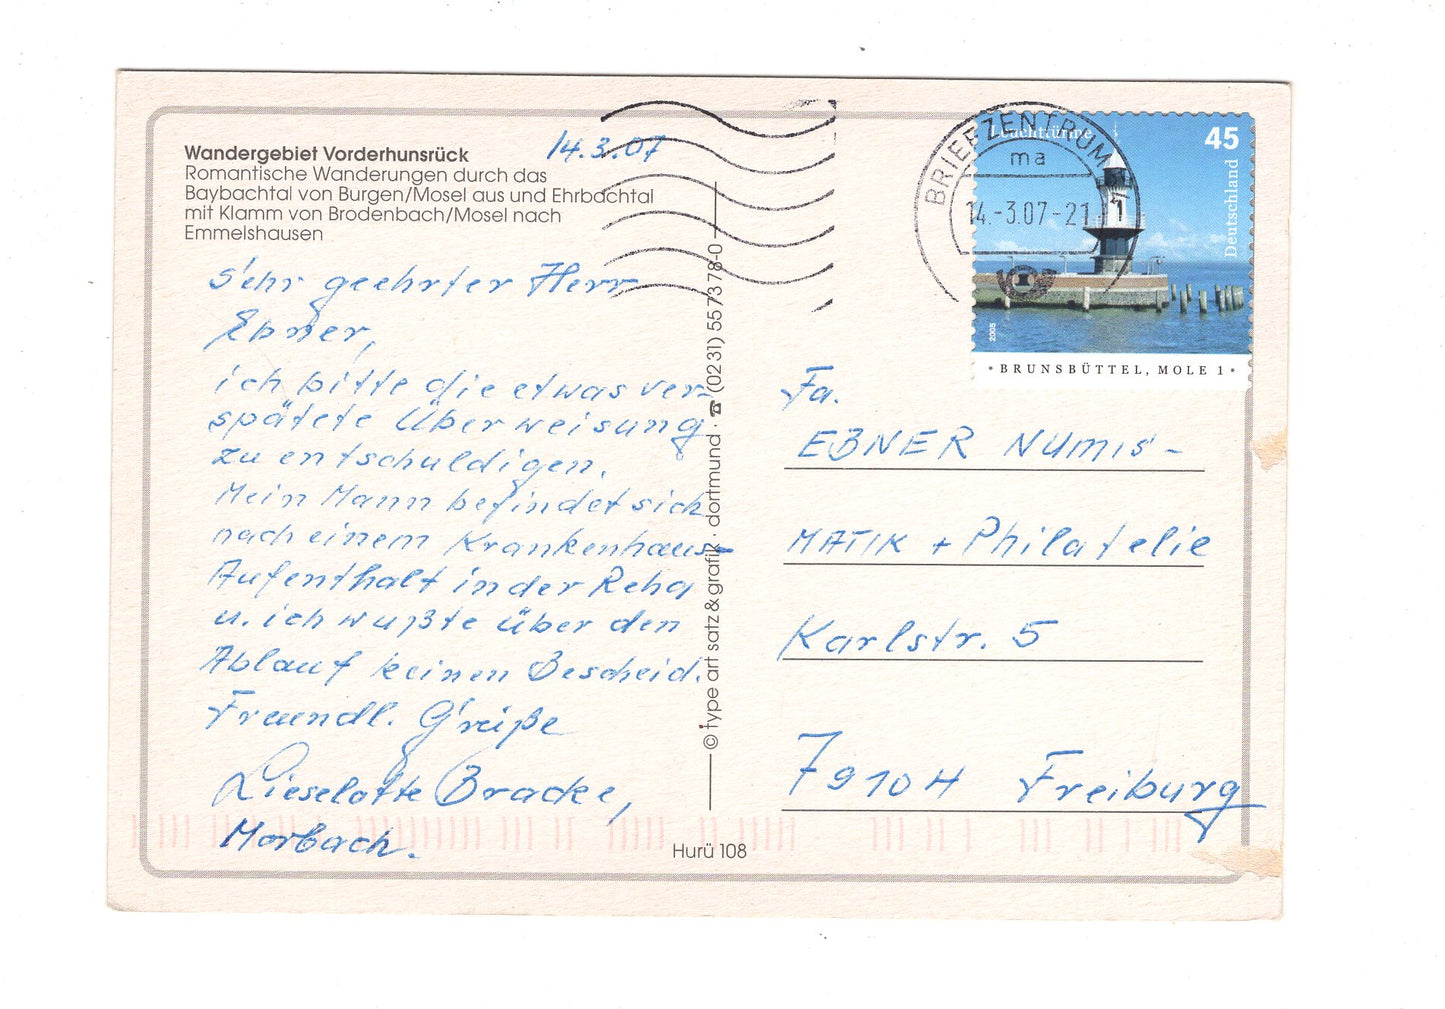 Wandergebiet Vorderhunsrück
Romantische Wanderungen durch das
Baybachtal von Burgen/Mosel aus und Ehrbachtal
mit Klamm von Brodenbach/Mosel nach
Emmelshausen
14.3.07
Sehr geehrter Herr
Ebner,
ich bitte die etwas ver-
spätete Überweisung
zu entschuldigen.
Mein Mann befindet sich
nach einem Krankenhaus-
Aufenthalt in der Reha
u. ich wußte über den
Ablauf keinen Bescheid.
Freundl. Grüße
Lieselotte Bracke,
Morbach.
© type art satz & grafik · dortmund · ☎ (0231) 557378-0
Hurü 108
BRIEFZENTRUM
ma
14.-3.07-21
1
Leuchttürme
45
Deutschland
2005
· BRUNSBÜTTEL, MOLE 1 ·
Fa.
EBNER NUMIS-
MATIK + Philatelie
Karlstr. 5
79104 Freiburg